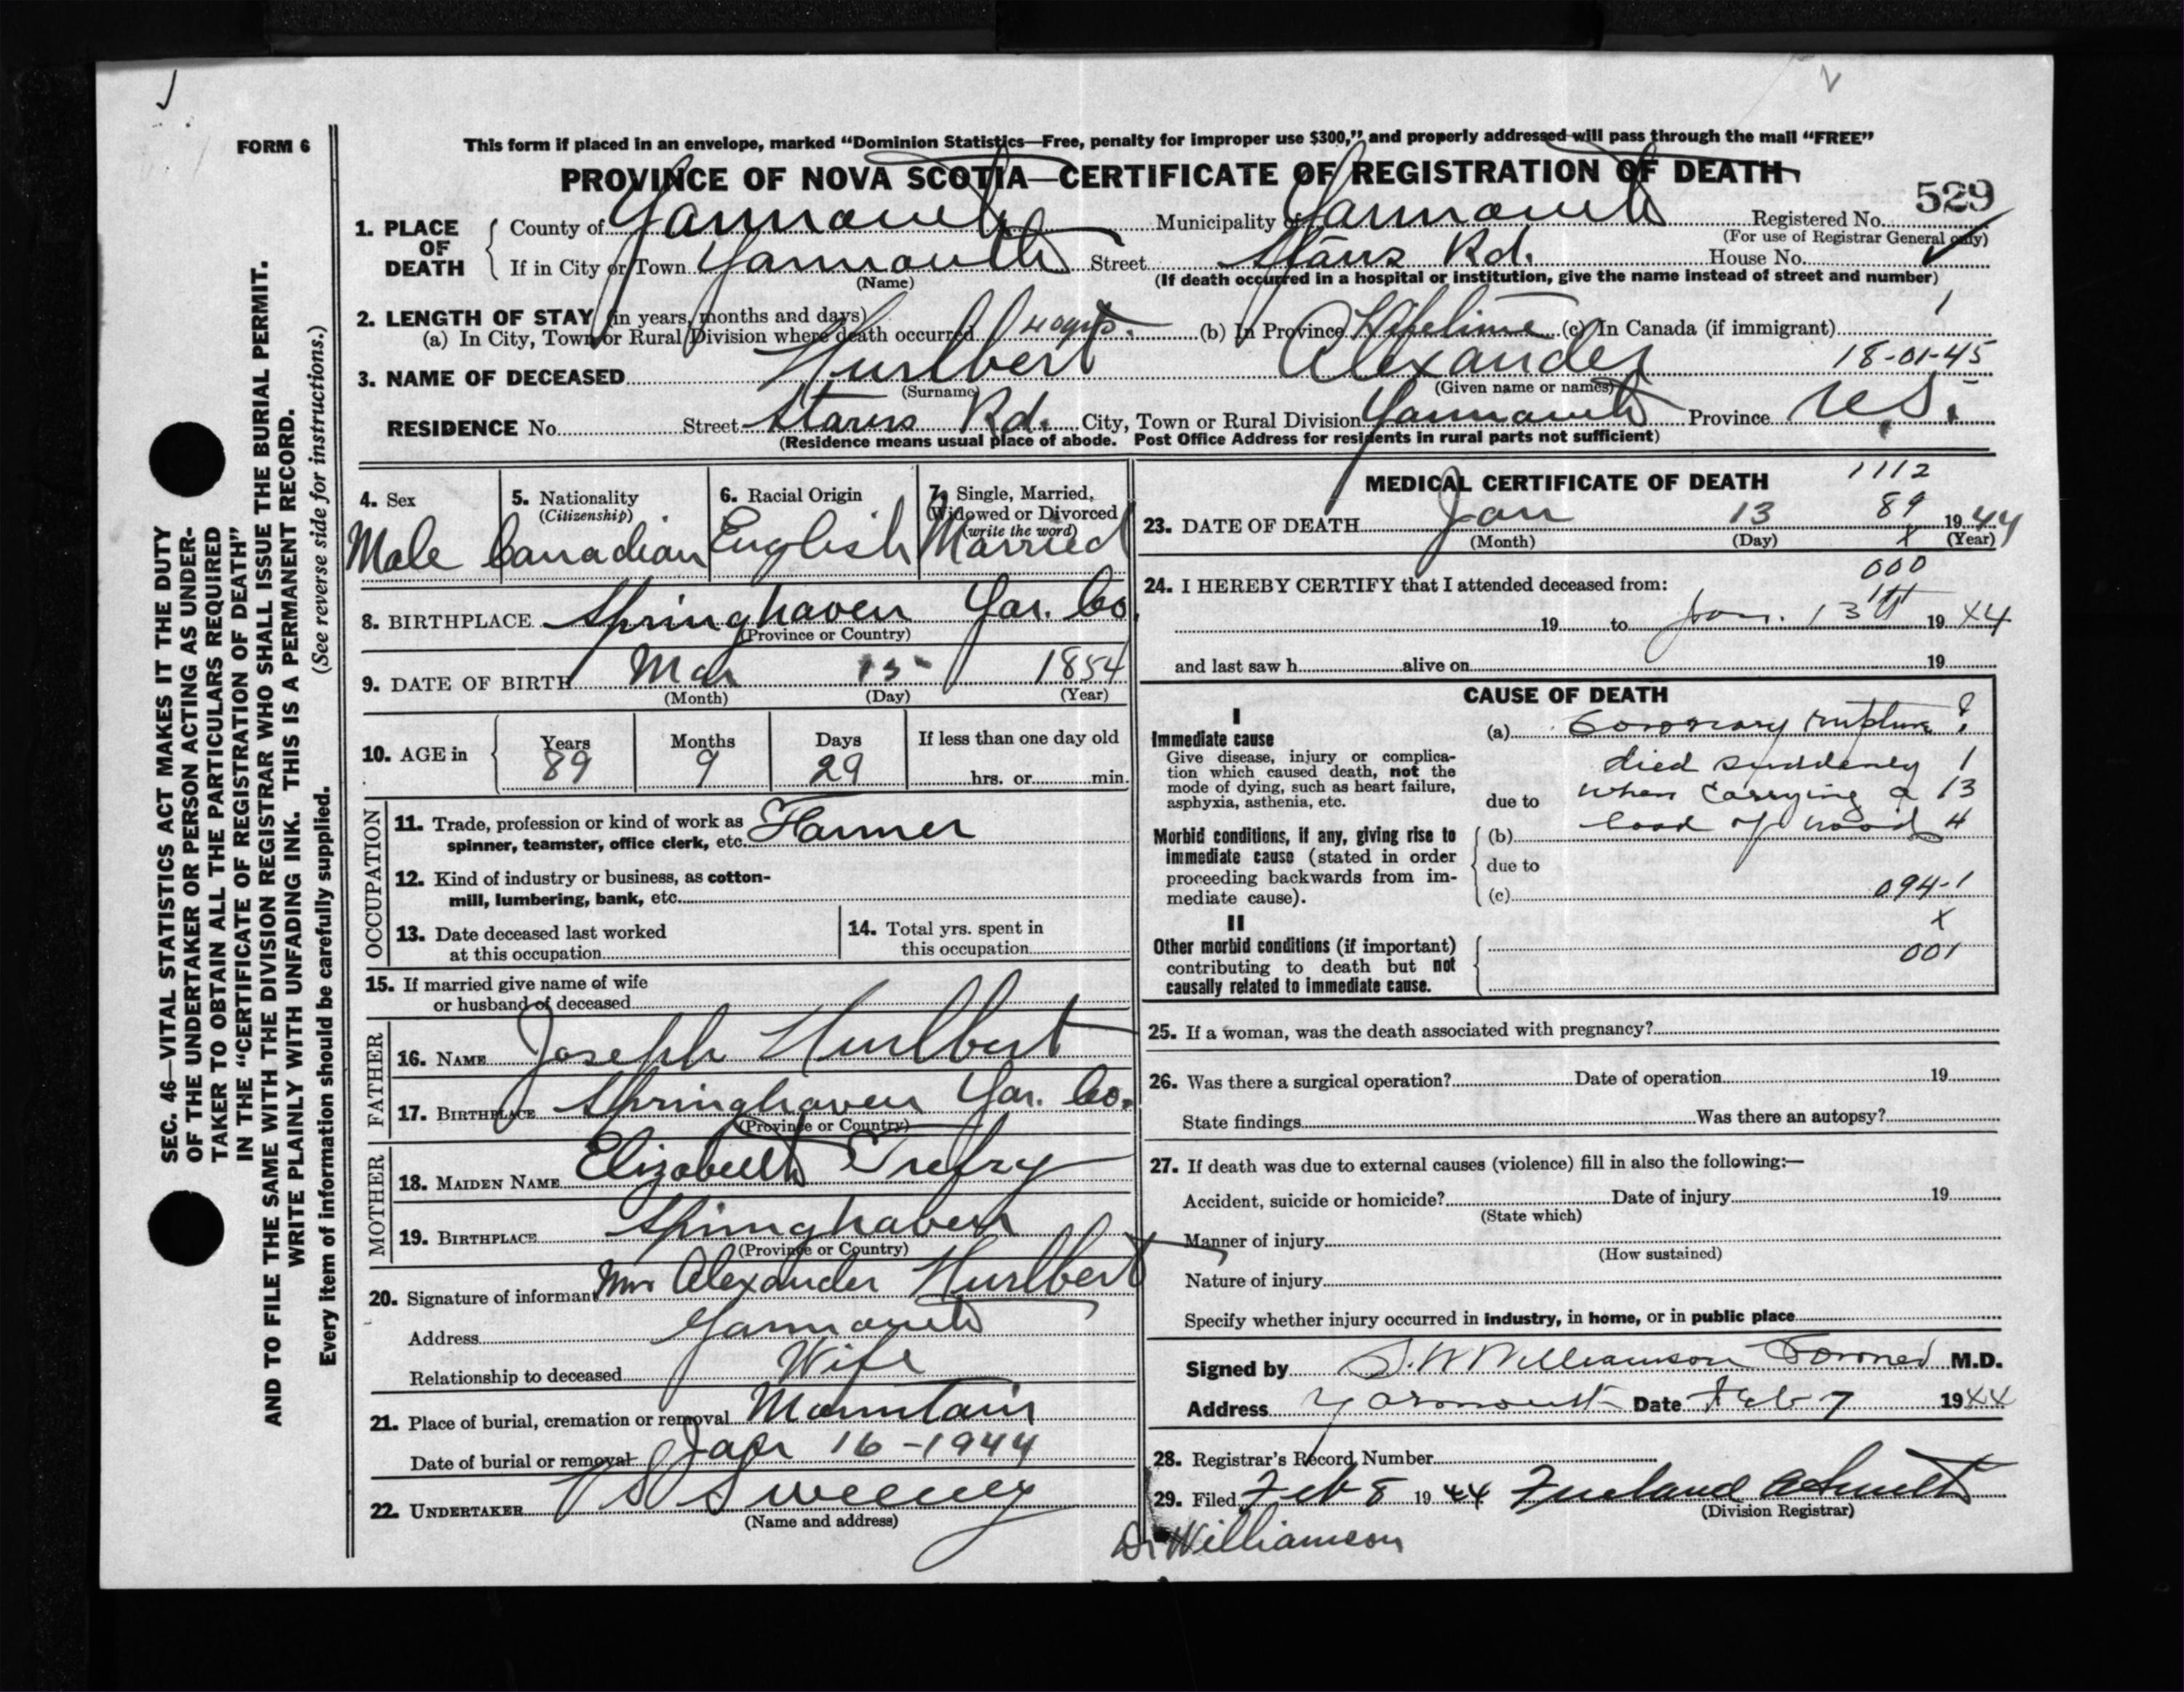 FORM 6
This form if placed in an envelope, marked “Dominion Statistics—Free, penalty for improper use $300,” and properly addressed will pass through the mail “FREE”
PROVINCE OF NOVA SCOTIA—CERTIFICATE OF REGISTRATION OF DEATH
529
1. PLACE OF DEATH { County of Yarmouth Municipality of Yarmouth Registered No.
(For use of Registrar General only)
If in City or Town Yarmouth Street Starrs Rd. House No.
(Name)
(If death occurred in a hospital or institution, give the name instead of street and number)
2. LENGTH OF STAY (in years, months and days)
(a) In City, Town or Rural Division where death occurred 40 yrs. (b) In Province Lifetime (c) In Canada (if immigrant) 1
3. NAME OF DECEASED Hurlbert Alexander 18-01-45
(Surname) (Given name or names)
RESIDENCE No. Street Starrs Rd. City, Town or Rural Division Yarmouth Province N.S.
(Residence means usual place of abode. Post Office Address for residents in rural parts not sufficient)
4. Sex Male
5. Nationality (Citizenship) Canadian
6. Racial Origin English
7. Single, Married, Widowed or Divorced (write the word) Married
8. BIRTHPLACE Springhaven Yar. Co.
(Province or Country)
9. DATE OF BIRTH Mar 15 1854
(Month) (Day) (Year)
10. AGE in { Years 89 Months 9 Days 29 If less than one day old
hrs. or min.
OCCUPATION
11. Trade, profession or kind of work as spinner, teamster, office clerk, etc. Farmer
12. Kind of industry or business, as cotton-mill, lumbering, bank, etc.
13. Date deceased last worked at this occupation
14. Total yrs. spent in this occupation
15. If married give name of wife or husband of deceased
FATHER
16. NAME Joseph Hurlbert
17. BIRTHPLACE Springhaven Yar. Co.
(Province or Country)
MOTHER
18. MAIDEN NAME Elizabeth Trefry
19. BIRTHPLACE Springhaven
(Province or Country)
20. Signature of informant Mrs Alexander Hurlbert
Address Yarmouth
Relationship to deceased Wife
21. Place of burial, cremation or removal Mountain
Date of burial or removal Jan 16-1944
22. UNDERTAKER V S Sweeney
(Name and address)
MEDICAL CERTIFICATE OF DEATH
1112
89
23. DATE OF DEATH Jan 13 1944
(Month) (Day) x (Year)
000
24. I HEREBY CERTIFY that I attended deceased from:
19 to Jan. 13th 1944
and last saw h alive on 19
CAUSE OF DEATH
I
Immediate cause
Give disease, injury or complication which caused death, not the mode of dying, such as heart failure, asphyxia, asthenia, etc.
(a) Coronary rupture ?
died suddenly 1
due to when carrying a 13
(b) load of wood 4
due to
(c) 094-1
Morbid conditions, if any, giving rise to immediate cause (stated in order proceeding backwards from immediate cause).
II
x
001
Other morbid conditions (if important) contributing to death but not causally related to immediate cause.
25. If a woman, was the death associated with pregnancy?
26. Was there a surgical operation? Date of operation 19
State findings Was there an autopsy?
27. If death was due to external causes (violence) fill in also the following:—
Accident, suicide or homicide? Date of injury 19
(State which)
Manner of injury
(How sustained)
Nature of injury
Specify whether injury occurred in industry, in home, or in public place
Signed by S.W Williamson Coroner M.D.
Address Yarmouth Date Feb 7 1944
28. Registrar's Record Number
29. Filed Feb 8 1944
(Division Registrar)
Dr Williamson
SEC. 46—VITAL STATISTICS ACT MAKES IT THE DUTY
OF THE UNDERTAKER OR PERSON ACTING AS UNDER-
TAKER TO OBTAIN ALL THE PARTICULARS REQUIRED
IN THE “CERTIFICATE OF REGISTRATION OF DEATH”
AND TO FILE THE SAME WITH THE DIVISION REGISTRAR WHO SHALL ISSUE THE BURIAL PERMIT.
WRITE PLAINLY WITH UNFADING INK. THIS IS A PERMANENT RECORD.
Every item of information should be carefully supplied. (See reverse side for instructions.)